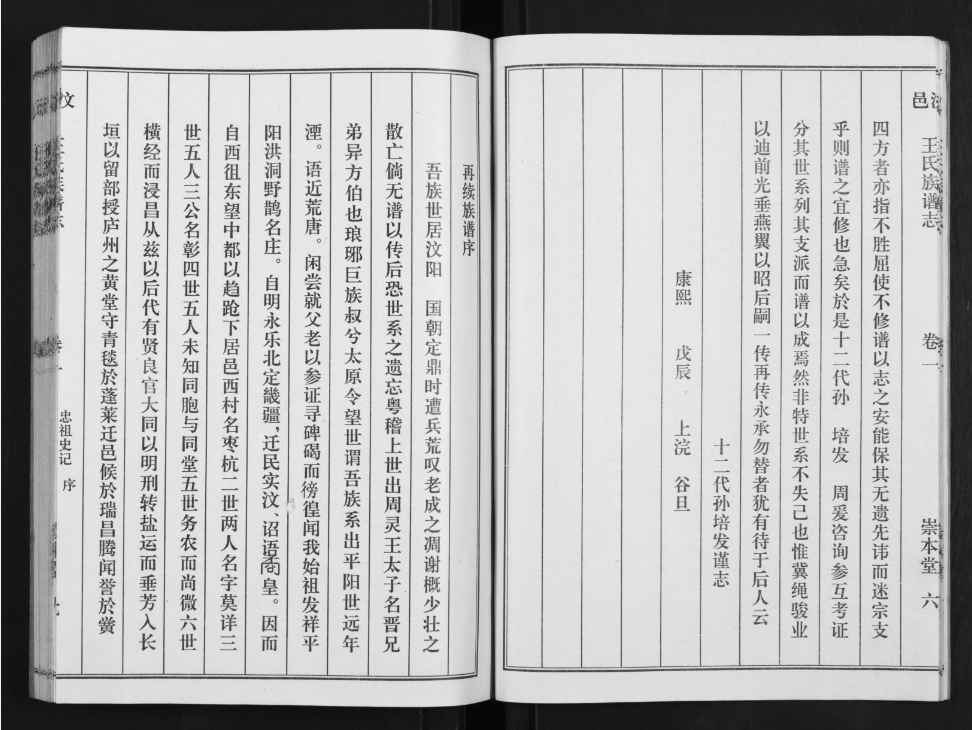 邑
王氏族谱志
卷一
崇本堂
六
四方者亦指不胜屈使不修谱以志之安能保其无遗先讳而迷宗支
乎则谱之宜修也急矣於是十二代孙 培发 周爰咨询参互考证
分其世系列其支派而谱以成焉然非特世系不失己也惟冀绳骏业
以迪前光垂燕翼以昭后嗣一传再传永承勿替者犹有待于后人云
十二代孙培发谨志
康熙 戊辰 上浣 谷旦
再续族谱序
吾族世居汶阳 国朝定鼎时遭兵荒叹老成之凋谢概少壮之
散亡倘无谱以传后恐世系之遗忘粤稽上世出周灵王太子名晋兄
弟异方伯也琅琊巨族叔兮太原令望世谓吾族系出平阳世远年
湮。语近荒唐。闲尝就父老以参证寻碑碣而徬徨闻我始祖发祥平
阳洪洞野鹊名庄。自明永乐北定畿疆,迁民实汶、诏语矞皇。因而
自西徂东望中都以趋跄下居邑西村名枣杭二世两人名字莫详三
世五人三公名彰四世五人未知同胞与同堂五世务农而尚微六世
横经而浸昌从兹以后代有贤良官大同以明刑转盐运而垂芳入长
垣以留部授庐州之黄堂守青毯於蓬莱迁邑候於瑞昌腾闻誉於黉
汶
忠祖史记 序
九